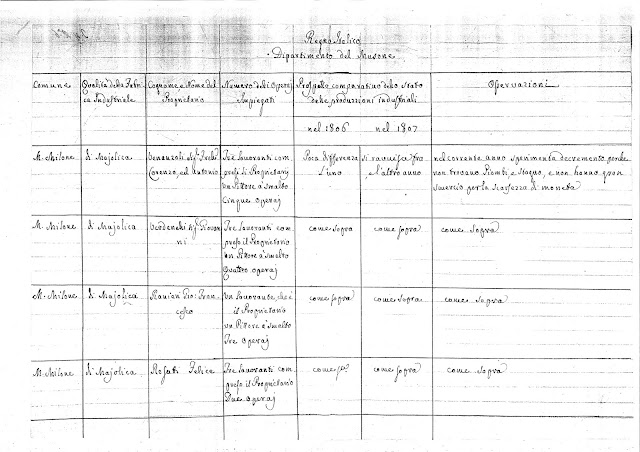 Regno Italico
Dipartimento del Musone
Comune
Qualità della Fabri
ca Industriale
Cognome e Nome del
Proprietario
Numero delli Operaj
Impiegati
Prospetto comparativo dello Stato
delle produzioni industriali
nel 1806 nel 1807
Osservazioni
M. Milone
di Majolica
Venanzoli
Lorenzo, ed Antonio
Tre lavoranti com
presi li Proprietarj
un Pittore a Smalto
Cinque operaj
Poca differenza si ravvisa fra
l'uno l'altro anno
nel corrente anno sperimenta decremento perchè
non trovano Piombi e Stagno, e non hanno gran
smercio per la scarsezza di moneta
M. Milone
di Majolica
Verdenchi Giovan
ni
Tre lavoranti com
preso il Proprietario
un Pittore a Smalto
Quattro operaj
come sopra
come sopra
come sopra
M. Milone
di Majolica
Raniani Gio: Fran
cesco
Un lavorante, che è
il Proprietario
un Pittore a Smalto
Tre Operaj
come sopra
come sopra
come sopra
M. Milone
di Majolica
Rosati Felice
Tre lavoranti com
preso il Proprietario
Due operaj
come sopra
come sopra